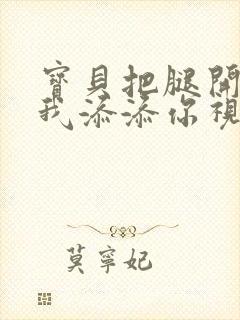 寶貝把腿開
我添添你視
莫寧妃